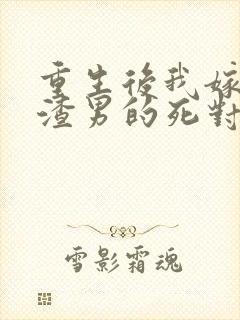 重生後我嫁
渣男的死對
雪影霜魂